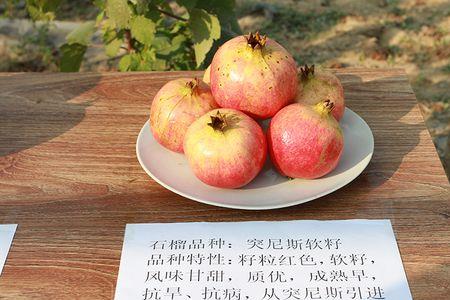 石榴品种：突尼斯软籽
品种特性：籽粒红色，软籽，
风味甘甜，质优，成熟早，
抗旱、抗病，从突尼斯引进